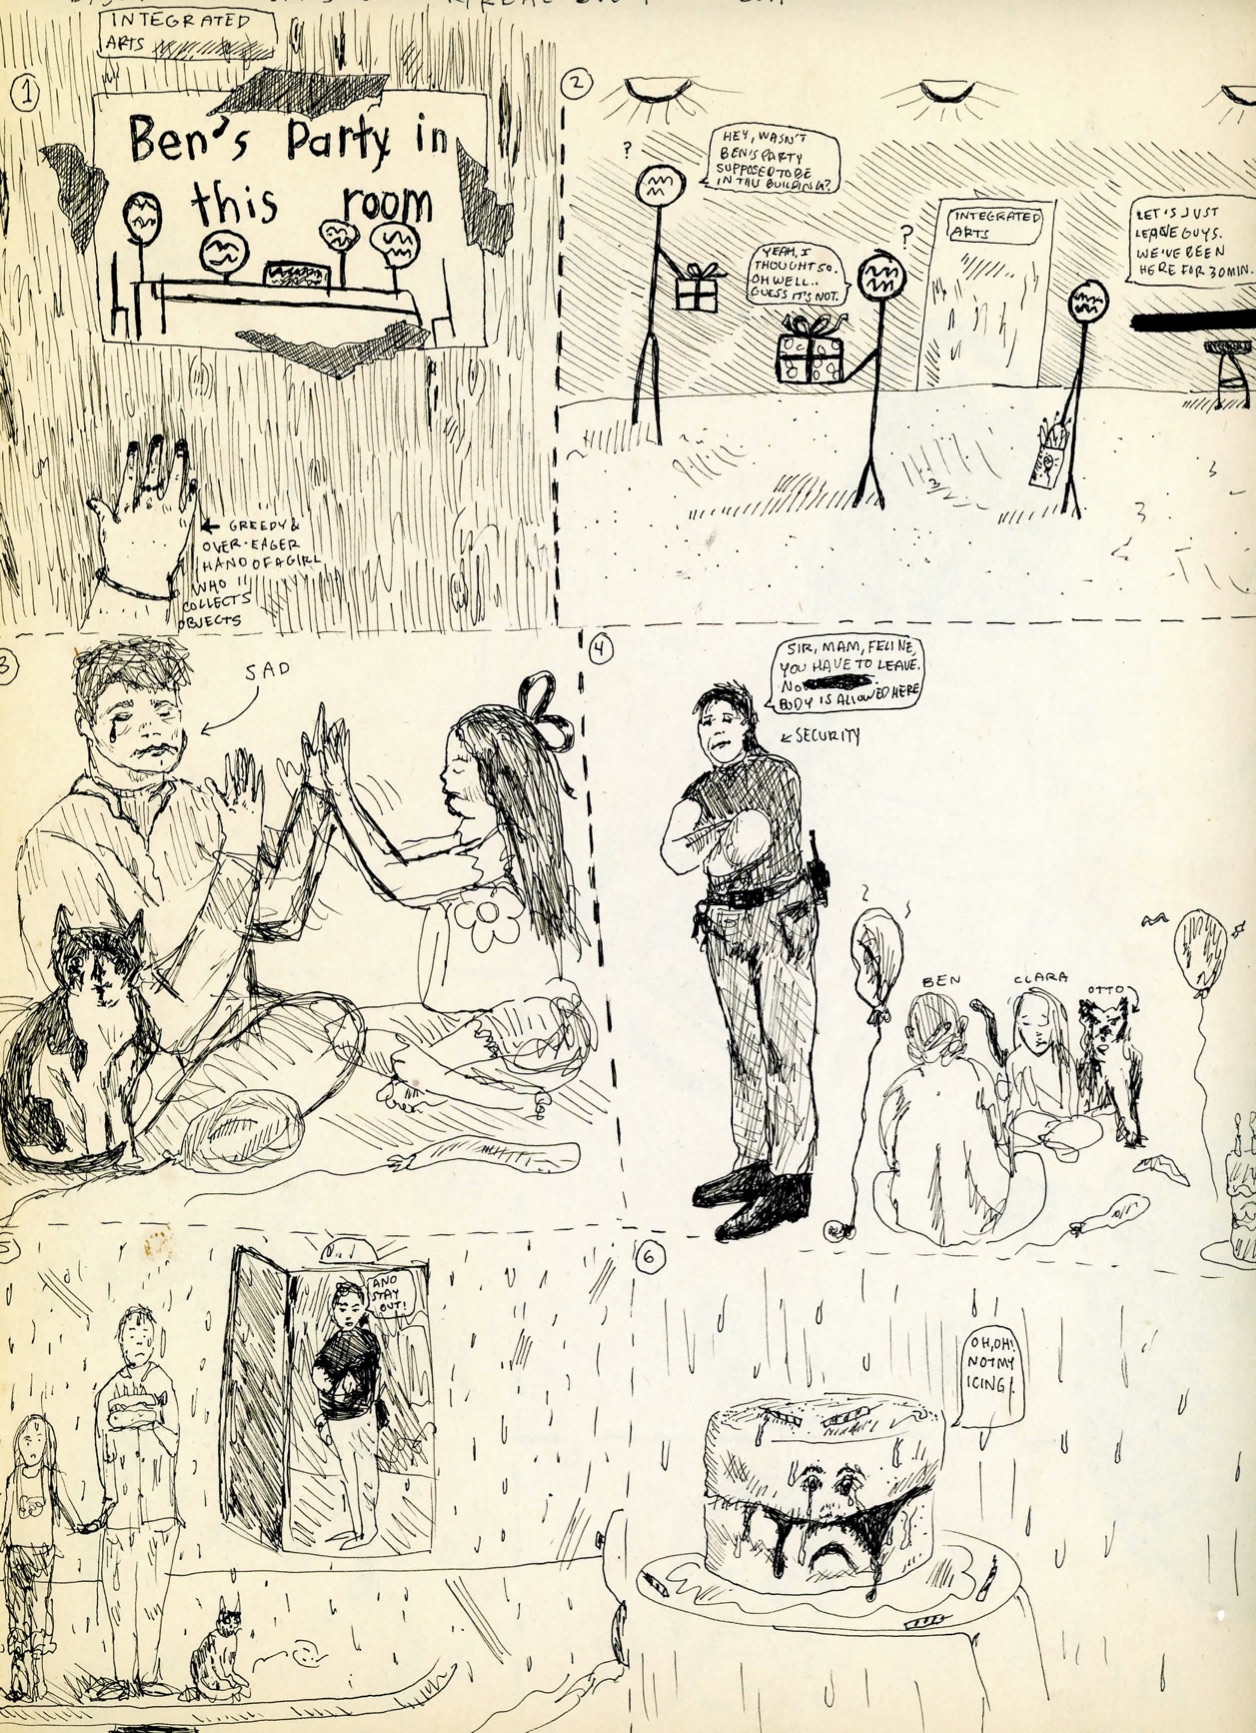 INTEGRATED
ARTS
1
Ben's Party in
this room
← GREEDY &
OVER-EAGER
HAND OF A GIRL
WHO
COLLECTS
OBJECTS
2
?
HEY, WASN'T
BEN'S PARTY
SUPPOSED TO BE
IN THIS BUILDING?
YEAH, I
THOUGHT SO.
OH WELL..
GUESS IT'S NOT.
?
INTEGRATED
ARTS
LET'S JUST
LEAVE GUYS.
WE'VE BEEN
HERE FOR 30 MIN.
3
SAD
4
SIR, MAM, FELINE,
YOU HAVE TO LEAVE.
NO
BODY IS ALLOWED HERE
← SECURITY
BEN
CLARA
OTTO
5
AND
STAY
OUT!
6
OH, OH!
NOT MY
ICING!